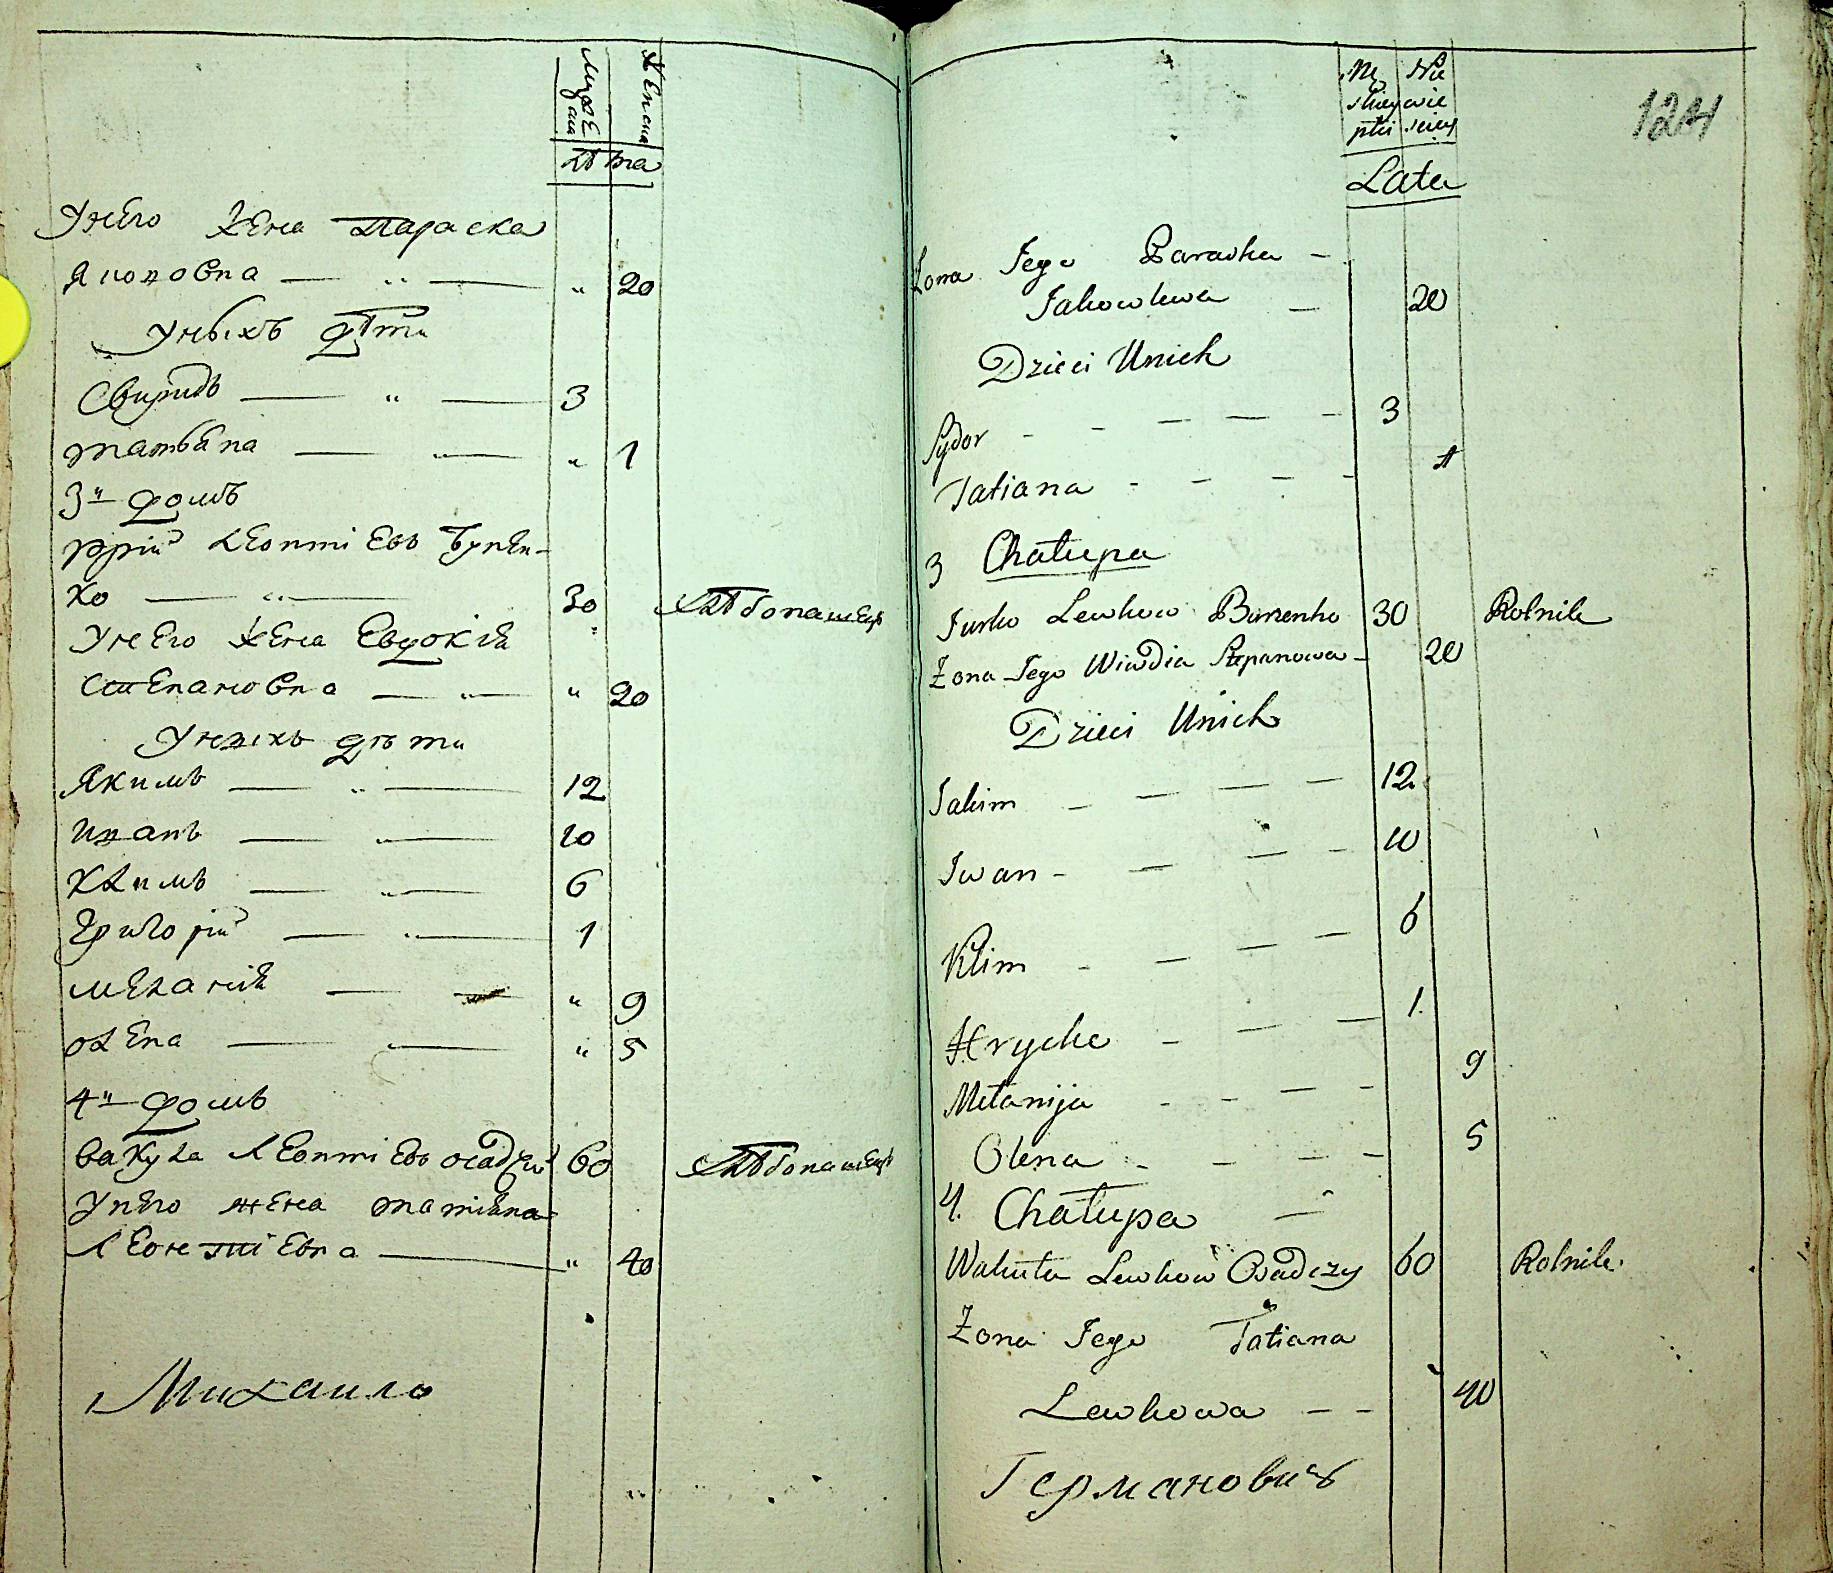 Мужеска Женска
Лѣта
У него жена Параска
Якововна — „ — „ 20
У ныхъ дѣти
Свиридъ — „ — 3
Татьяна — „ — „ 1
3й домъ
Юрій Леонтіевъ Бурен-
ко — „ — 30 Хлѣбопашецъ
У него жена Евдокія
Степановна — „ — „ 20
У ныхъ дѣти
Якимъ — „ — 12
Иванъ — „ — 10
Климъ — „ — 6
Григорій — „ — 1
Меланія — — „ 9
Олена — „ — „ 5
4й домъ
Вакула Леонтіевъ Осадчій 60 Хлѣбопашецъ
У него жена Татіяна
Леонтіевна — „ 40
Михаило
124
Męskiey płci Niewieściey
Lata
Żona Jego Paraska –
Jakowlewa – 20
Dzieci Unich
Sydor - - – – - 3
Tatiana - - - - 1
3 Chałupa
Jurko Lewkow Burzenko 30 Rolnik
Żona Jego Wiwdia Stepanowa – 20
Dzieci Unich
Jakim – – – – 12
Iwan - – – - 10
Klim - – – – 6
Hryćko - – – 1
Mełanija - - – - 9
Olena - - – - 5
4. Chałupa –
Wakuła Lewkow Osadczy 60 Rolnik.
Żona Jego Tatiana
Lewkowa – – 40
Германовичъ